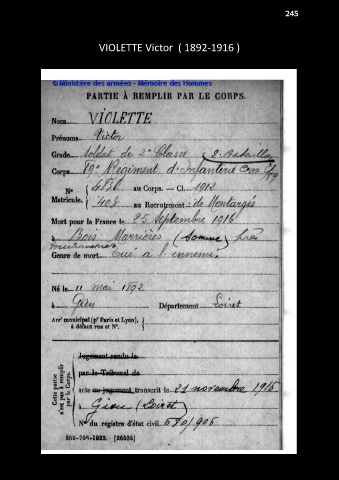 245
VIOLETTE Victor ( 1892-1916 )
© Ministère des armées - Mémoire des Hommes
PARTIE À REMPLIR PAR LE CORPS.
Nom VIOLETTE
Prénoms Victor
Grade soldat de 2e Classe 2e Bataillon
Corps 89e Régiment d'Infanterie
N° Matricule. 4830 au Corps. — Cl. 1912
408 au Recrutement : de Montargis
Mort pour la France le 25 Septembre 1916
à Bois Marrières (Somme) près
Genre de mort Tué à l'ennemi
Né le 11 mai 1892
à Gien Département Loiret
Arr' municipal (p' Paris et Lyon), à défaut rue et N°.
Cette partie n'est pas à remplir par le Corps.
Jugement rendu le
par le Tribunal de
acte ou jugement transcrit le 21 novembre 1916
à Gien (Loiret)
N° du registre d'état civil 680/906
269-708-1922. [26434]